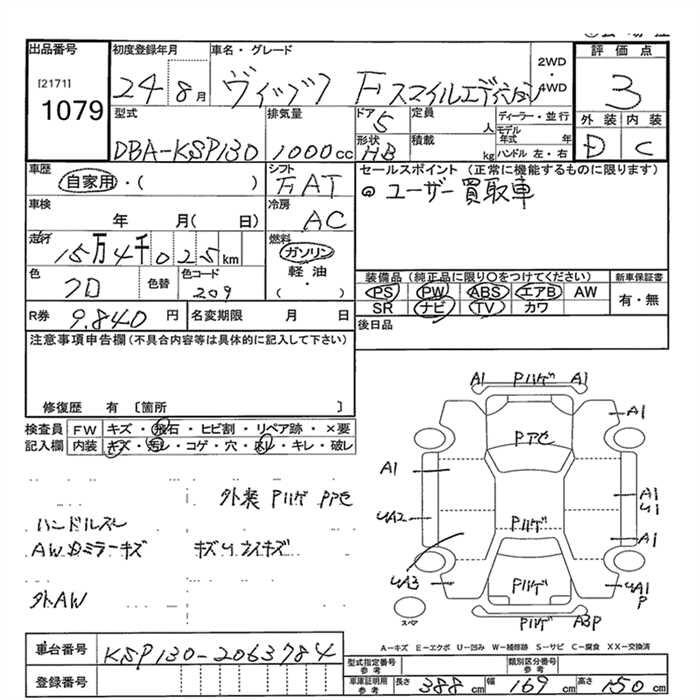 出品番号 初度登録年月 車名・グレード 2WD・4WD 評価点
[2171]
1079 24 8月 ヴィッツ F スマイルエディション 3
型式 排気量 ドア 5 定員 人 ディーラー・並行 外装 内装
DBA-KSP130 1000cc 形状 HB 積載 kg モデル年式 年 ハンドル 左・右 D C
車歴 シフト セールスポイント (正常に機能するものに限ります)
自家用・( ) FAT ◎ユーザー買取車
車検 冷房
年 月( 日) AC
走行 燃料
15万4千025km ガソリン
色 色替 色コード 軽油・
クロ 209 ( )
装備品 (純正品に限り○をつけてください) 新車保証書
PS PW ABS エアB AW 有・無
SR ナビ TV カワ
R券 9.840円 名変期限 月 日 後日品
注意事項申告欄(不具合内容等は具体的に記入して下さい)
修復歴 有 〔箇所 〕
検査員 FW キズ・飛石・ヒビ割・リペア跡・×要
記入欄 内装 キズ・汚レ・コゲ・穴・凹レ・キレ・破レ
外装 Pハゲ Pアセ
ハンドルスレ
AW ドミラーキズ キズ ウスイキズ
外AW
A1 Pハゲ A1
A1
Pアセ
A1
A1
U1
UA2
Pハゲ
A1
UA3
Pハゲ
UA1
P
スペア
Pハゲ A3P
A-キズ E-エクボ U-凹み W-補修跡 S-サビ C-腐食 XX-交換済
車台番号 KSP130-2063784
登録番号
型式指定番号 参考 類別区分番号 参考
車庫証明用 参考 長さ 388cm 幅 169cm 高さ 150cm